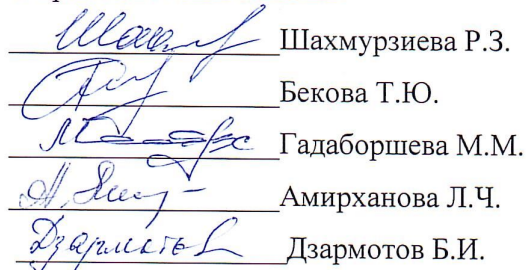 Шахмурзиева Р.З.
Бекова Т.Ю.
Гадаборшева М.М.
Амирханова Л.Ч.
Дзармотов Б.И.